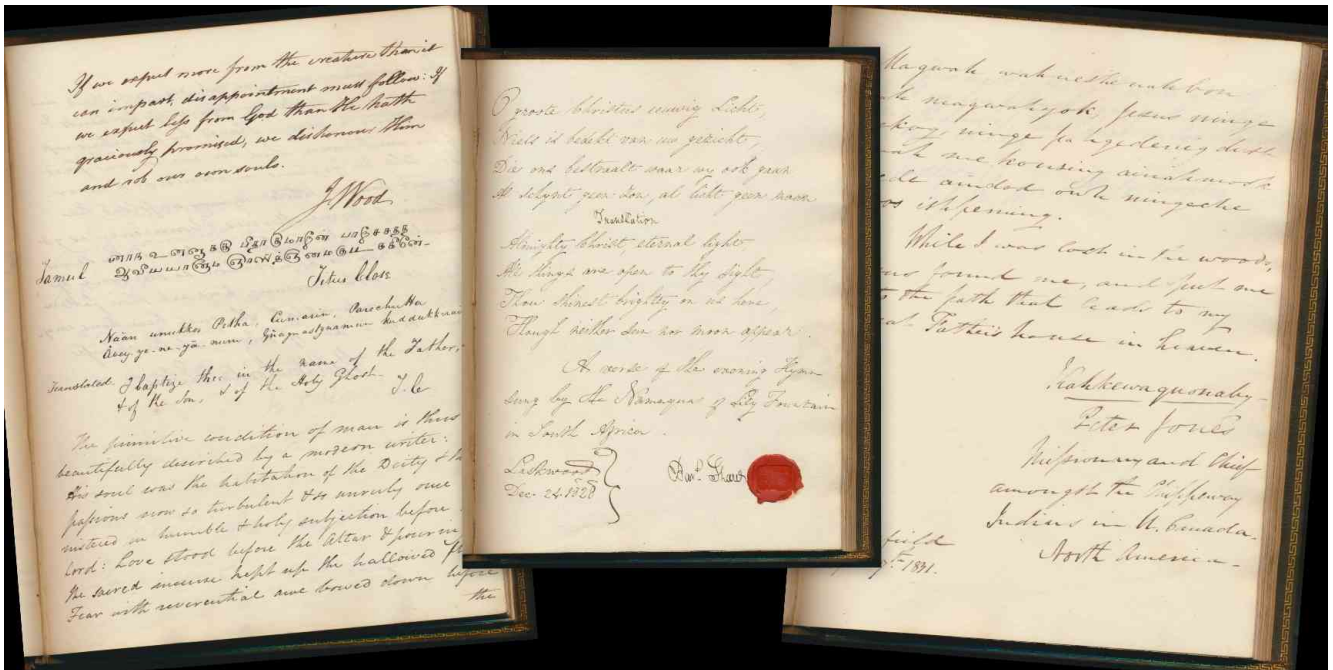 If we expect more from the creature than it
can impart, disappointment must follow: If
we expect less from God than He hath
graciously promised, we dishonour Him
and rob our own souls.
J Wood
Tamul
Titus Close
Naan unukku Pitha, Cumaran, Parischutta
Translated I baptize thee in the name of the Father,
& of the Son, & of the Holy Ghost. T. C
The primitive condition of man is thus
beautifully described by a modern writer:
His soul was the habitation of the Deity &
passions now so turbulent & so unruly once
in humble & holy subjection before
Lord: Love stood before the Altar &
the sacred incense kept up the hallowed
Fear with reverential awe bowed down before
the
O groote Christus eeuwig Licht,
Niets is bedekt van uw gezicht,
Die ons bestraalt waar wy ook gaan
Al schynt geen Son, al licht geen maan
Translation
Almighty Christ eternal light
All things are open to thy sight,
Thou shinest brightly on us here,
Though neither Sun nor moon appear.
A verse of the evening Hymn
sung by the Namaquas of Lily Fountain
in South Africa.
Dec. 24. 1828
Magwah, wahneshe nahbon
magwahyok, Jesus ninge
ninge
me kousing ainahmook
aindad owh ningeche
ishpeming.
While I was lost in the woods,
found me, and put me
the path that leads to my
Father's house in heaven.
Kahkewaquonaby
Peter Jones
Missionary and Chief
amongst the Chippeway
Indians in U. Canada.
North America
field
1831.